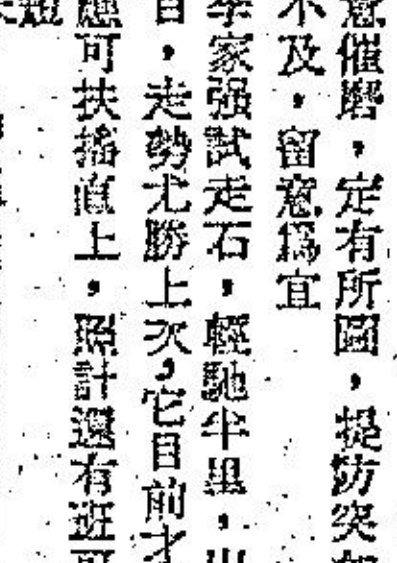 意催磨，定有所圖，提防突
不及，留意爲宜
李家强試走石，輕馳半里，出
自，走勢尤勝上次，它目前才
應可扶搖直上，照計還有班可